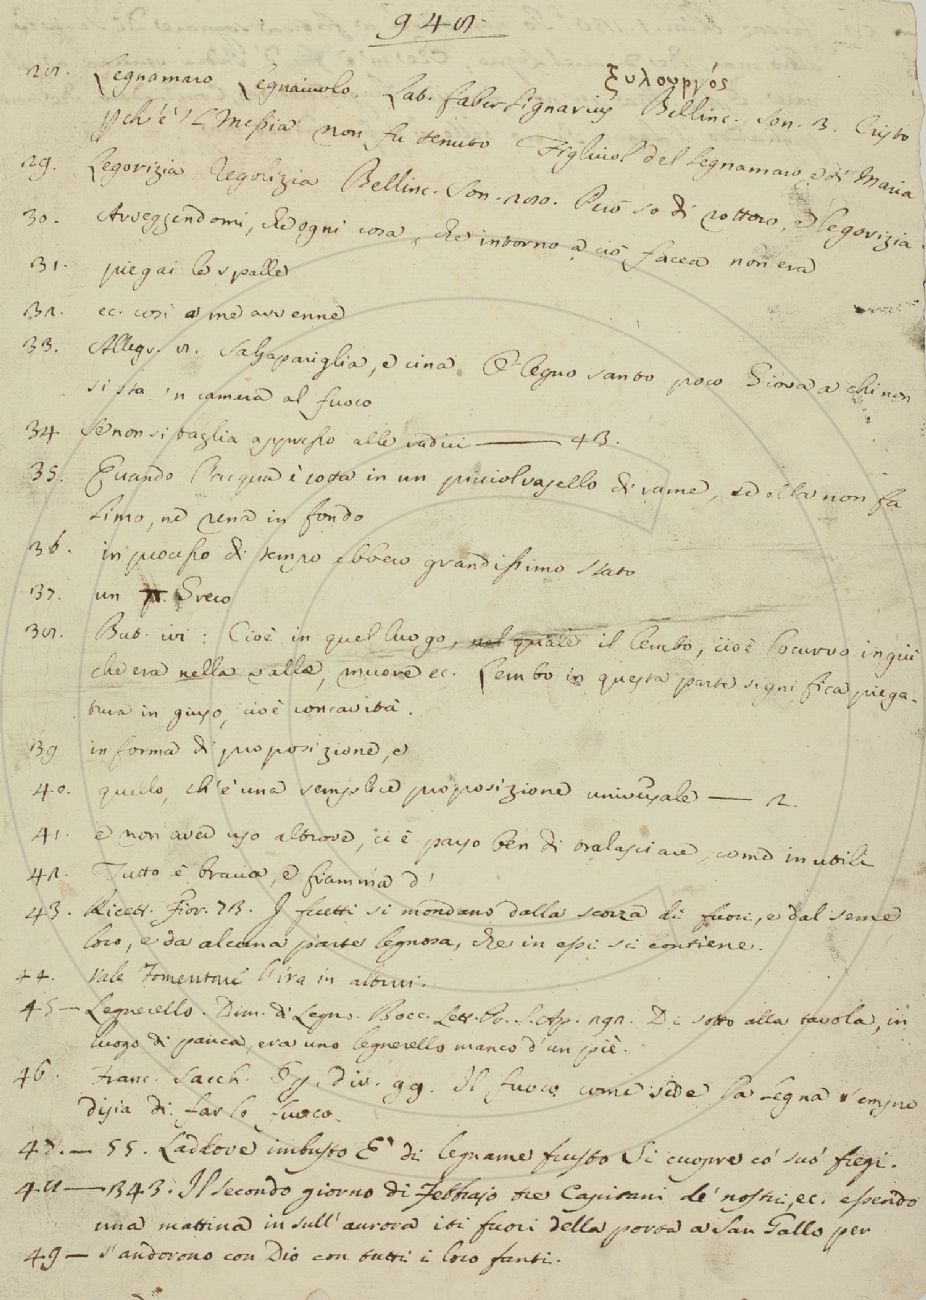 948.
28. Legnamaro Legnaiuolo. Lat. faber Lignarius ξυλουργός Bellinc. Son. 3. Cristo
ch'è 'l Messia non fu tenuto Figliuol del Legnamaro, e di Maria
29. Legorizia Regolizia Bellinc. Son. 280. Però so di lattero, e legorizia
30. Avveggendomi, che ogni cosa, che intorno a ciò facea non era
31. piegai le spalle
32. ec. così a me avvenne
33. Allegr. 8. Salsapariglia, e cina E 'l legno santo poco giova a chi non
si sta 'n camera al fuoco
34 Se non si taglia appresso alle radici — 43.
35. Quando l'acqua è cotta in un picciol vasello di rame, ed ella non fa
limo, nè rena in fondo
36. in processo di tempo ebbero grandissimo stato
37. un Greco
38. But. ivi: Cioè in quel luogo, nel quale il lembo, cioè lo curvo in giù
che era nella valle, muore ec. Lembo in questa parte significa piega-
tura in giuso, cioè concavità.
39 in forma di proposizione, e
40. quello, ch'è una semplice proposizione universale — 2.
41. e non aver uso altrove, ci è parso ben di tralasciare, come inutili
42. Tutto è bracia, e fiamma d'
43. Ricett. Fior. 73. I frutti si mondano dalla scorza di fuori, e dal seme
loro, e da alcuna parte legnosa, che in essi si contiene.
44. vale Fomentare l'ira in altrui.
45 — Legnerello. Dim. di Legno. Bocc. Lett. Pr. S. Ap. 292. Di sotto alla tavola, in
luogo di panca, era uno legnerello manco d'un piè.
46. Franc. Sacch. Op. Div. 99. Il fuoco come vede la legna sempre
disia di far lo fuoco.
47. — 55. Laddove imbusto E' di legname frusto Si cuopre co' suo' fregi.
48 — 343. Il secondo giorno di Febbrajo tre Capitani de' nostri, ec. essendo
una mattina in sull'aurora iti fuori della porta a San Gallo per
49 — s'andorono con Dio con tutti i loro fanti.